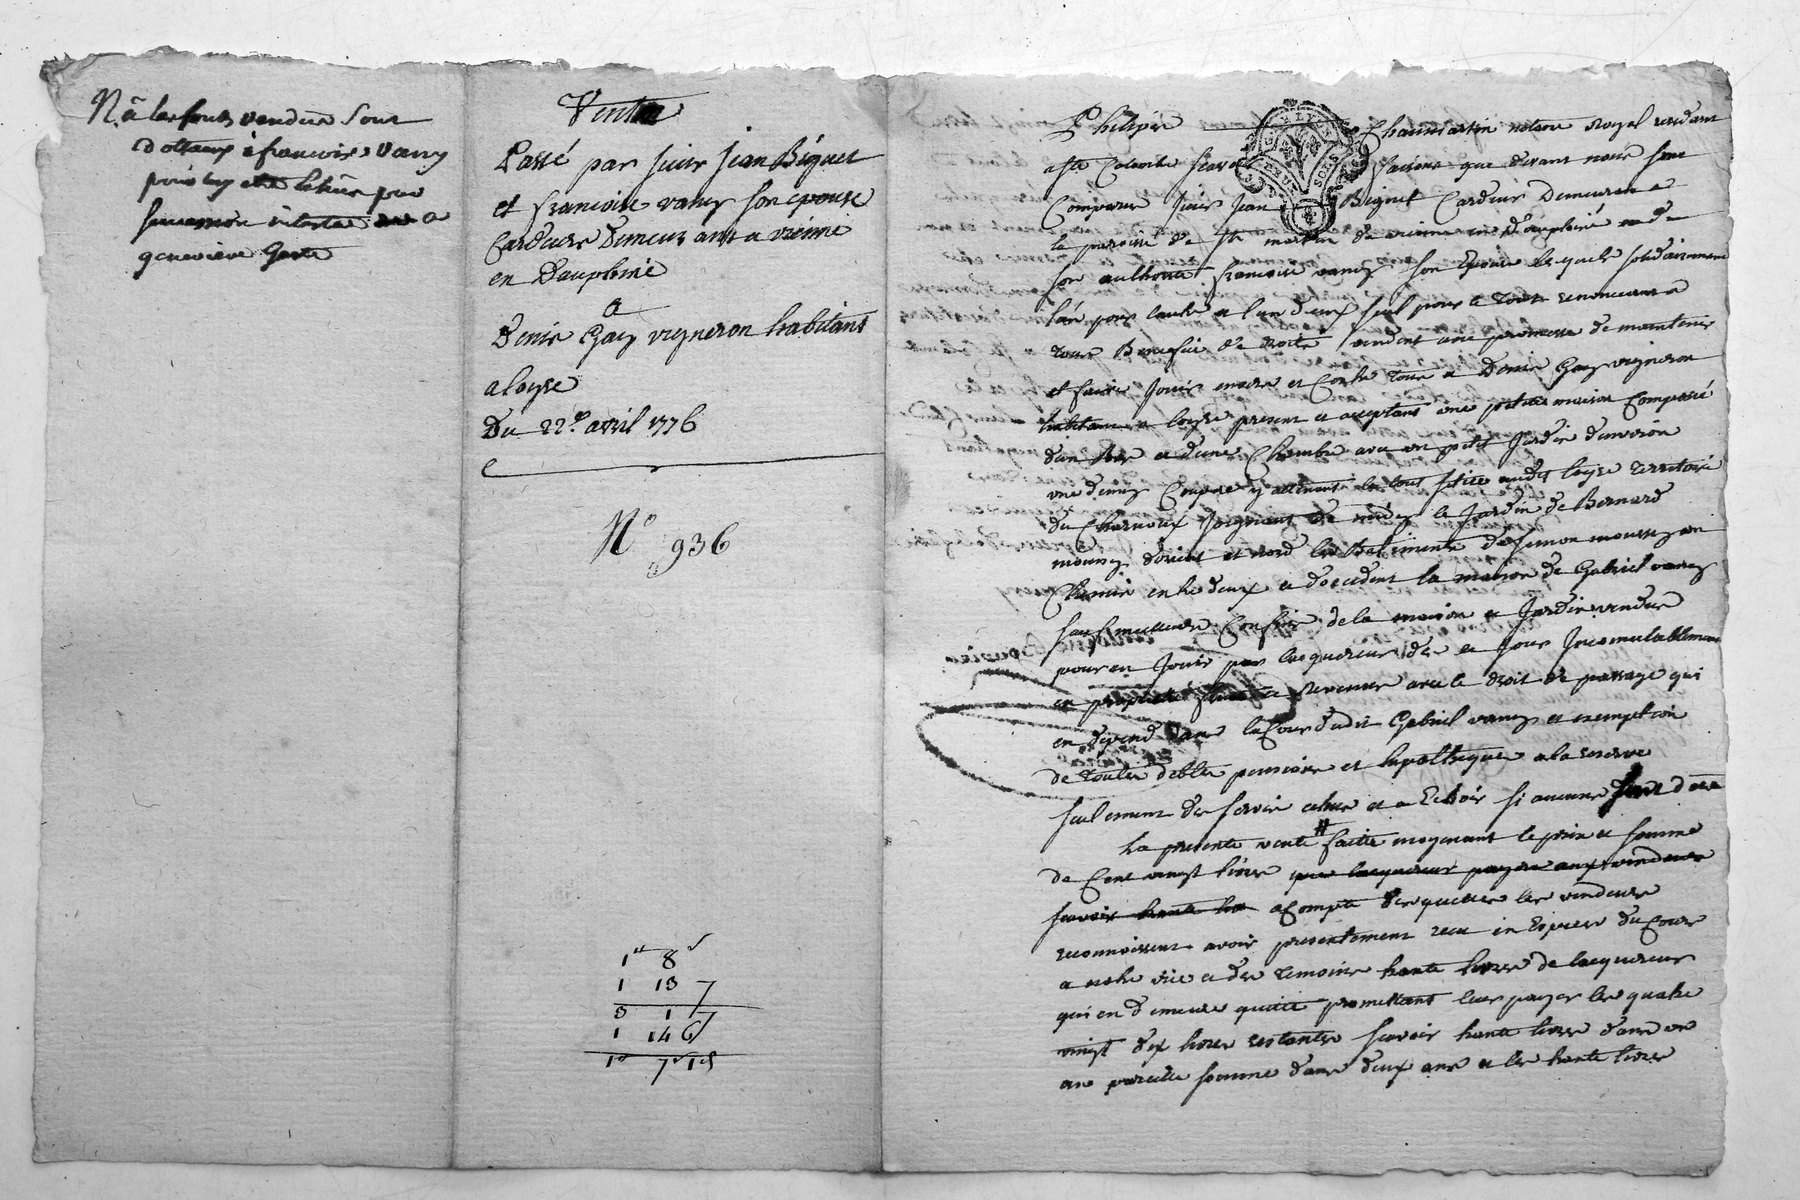 N. a les fonds vendus sont
à francois vany
par
a
genevieve
Vente
Passé par sieur Jean Biguet
et francoise vany son epouse
Cardeur Demeurant a vienne
en Dauphiné
a
Denis Gay vigneron habitant
a loyre
Du 22e. avril 1776
N° 936
1 8
1 13 7
3 1 7
1 14 6
7 1
Philippe Chaumartin notaire Royal residant
a ste Colombe scavoir faisons que devant nous sont
Comparus sieur Jean Biguet Cardeur Demeurant a
la paroisse de st martin de vienne en Dauphiné et de
son authorité francoise vany son Epouse lesquels solidairement
l'un pour l'autre et l'un d'eux seul pour le tout renonceant a
tous Benefice de droits vendent avec promesse de maintenir
et faire Jouir envers et Contre tous a Denis Gay vigneron
habitant a loyre present et acceptant une petite maison Composée
d'un Bas et d'une Chambre avec un petit Jardin d'environ
une demy Coupée y attenant le tout situé audit loyre territoire
du Charnoux Joignant de midy le Jardin de Bernard
mouney d'orient et nord les Batiments de simon
Chemin entre deux et d'occident la maison de Gabriel vany
sauf meilleurs Confins de la maison et Jardin vendus
pour en Jouir par lacquereur des ce Jour Incomutablement
en propriété et revenus avec le droit de passage qui
en depend dans la Cour dudit Gabriel vany et exemption
de toutes debtes pensions et hypotheques a la reserve
seulement des servis echus et a Echoir si aucuns sont dus
La presente vente faitte moyenant le prix et somme
de Cent vingt livres que lacquereur payera aux vendeurs
scavoir trente acompte desquelles les vendeurs
reconnoissent avoir presentement recu en Espece du Cours
a notre vue et des temoins trente livres de lacquereur
qui en demeure quitte promettant leur payer les quatre
vingt dix livres restantes scavoir trente livres dans un
an pareille somme dans deux ans et les trente livres